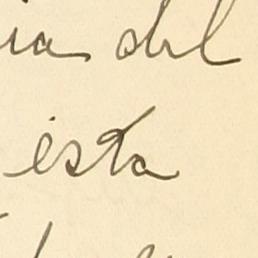 ia del
esta